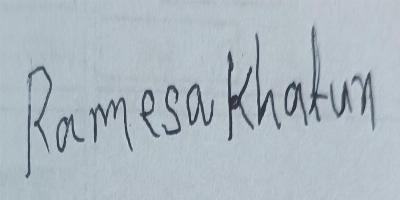 Ramesa Khatun